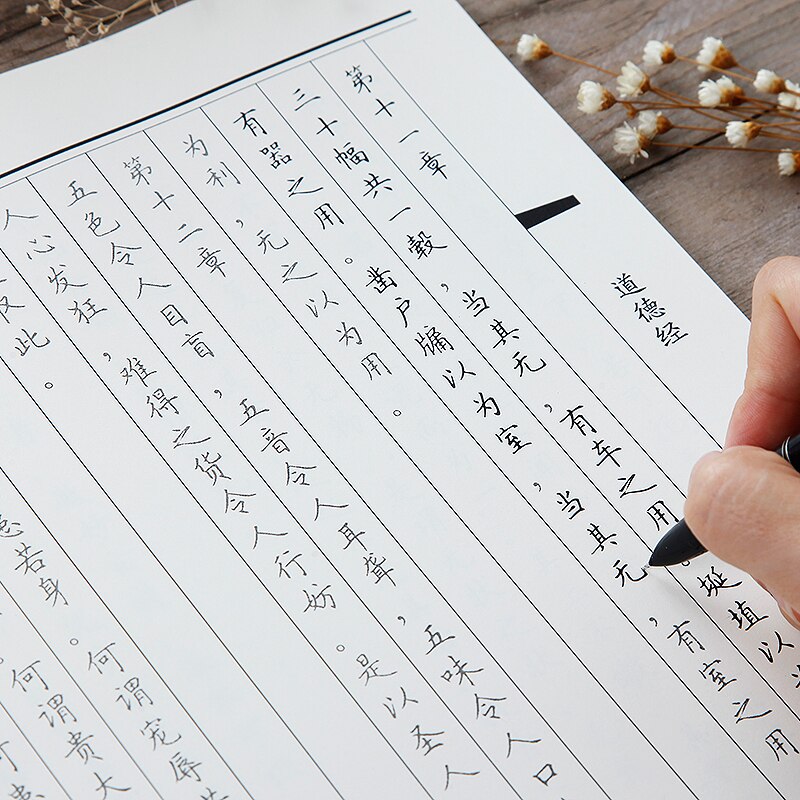 道德经
第十一章
三十幅共一毂，当其无，有车之用。埏埴以
有器之用。凿户牖以为室，当其无，有室之用
为利，无之以为用。
第十二章
五色令人目盲，五音令人耳聋，五味令人口
人心发狂，难得之货令人行妨。是以圣人
此。
若身。何谓宠辱
。何谓贵大